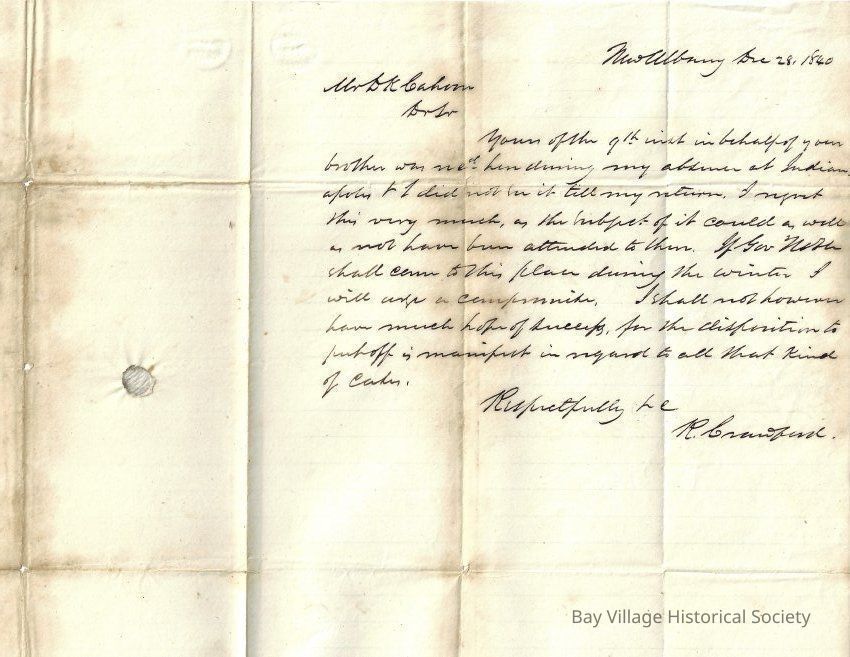 New Albany Dec 28, 1840
Mr D K Cahoon
Dr Sr
Yours of the 9th inst in behalf of your
brother was recd here during my absence at Indian
apolis & I did not see it till my return. I regret
this very much, as the subject of it could as well
as not have been attended to then. If Gov Noble
shall come to this place during the winter I
will urge a compromise. I shall not however
have much hope of success, for the disposition to
put off is manifest in regard to all that kind
of cases.
Respectfully &c
R. Crawford.
Bay Village Historical Society